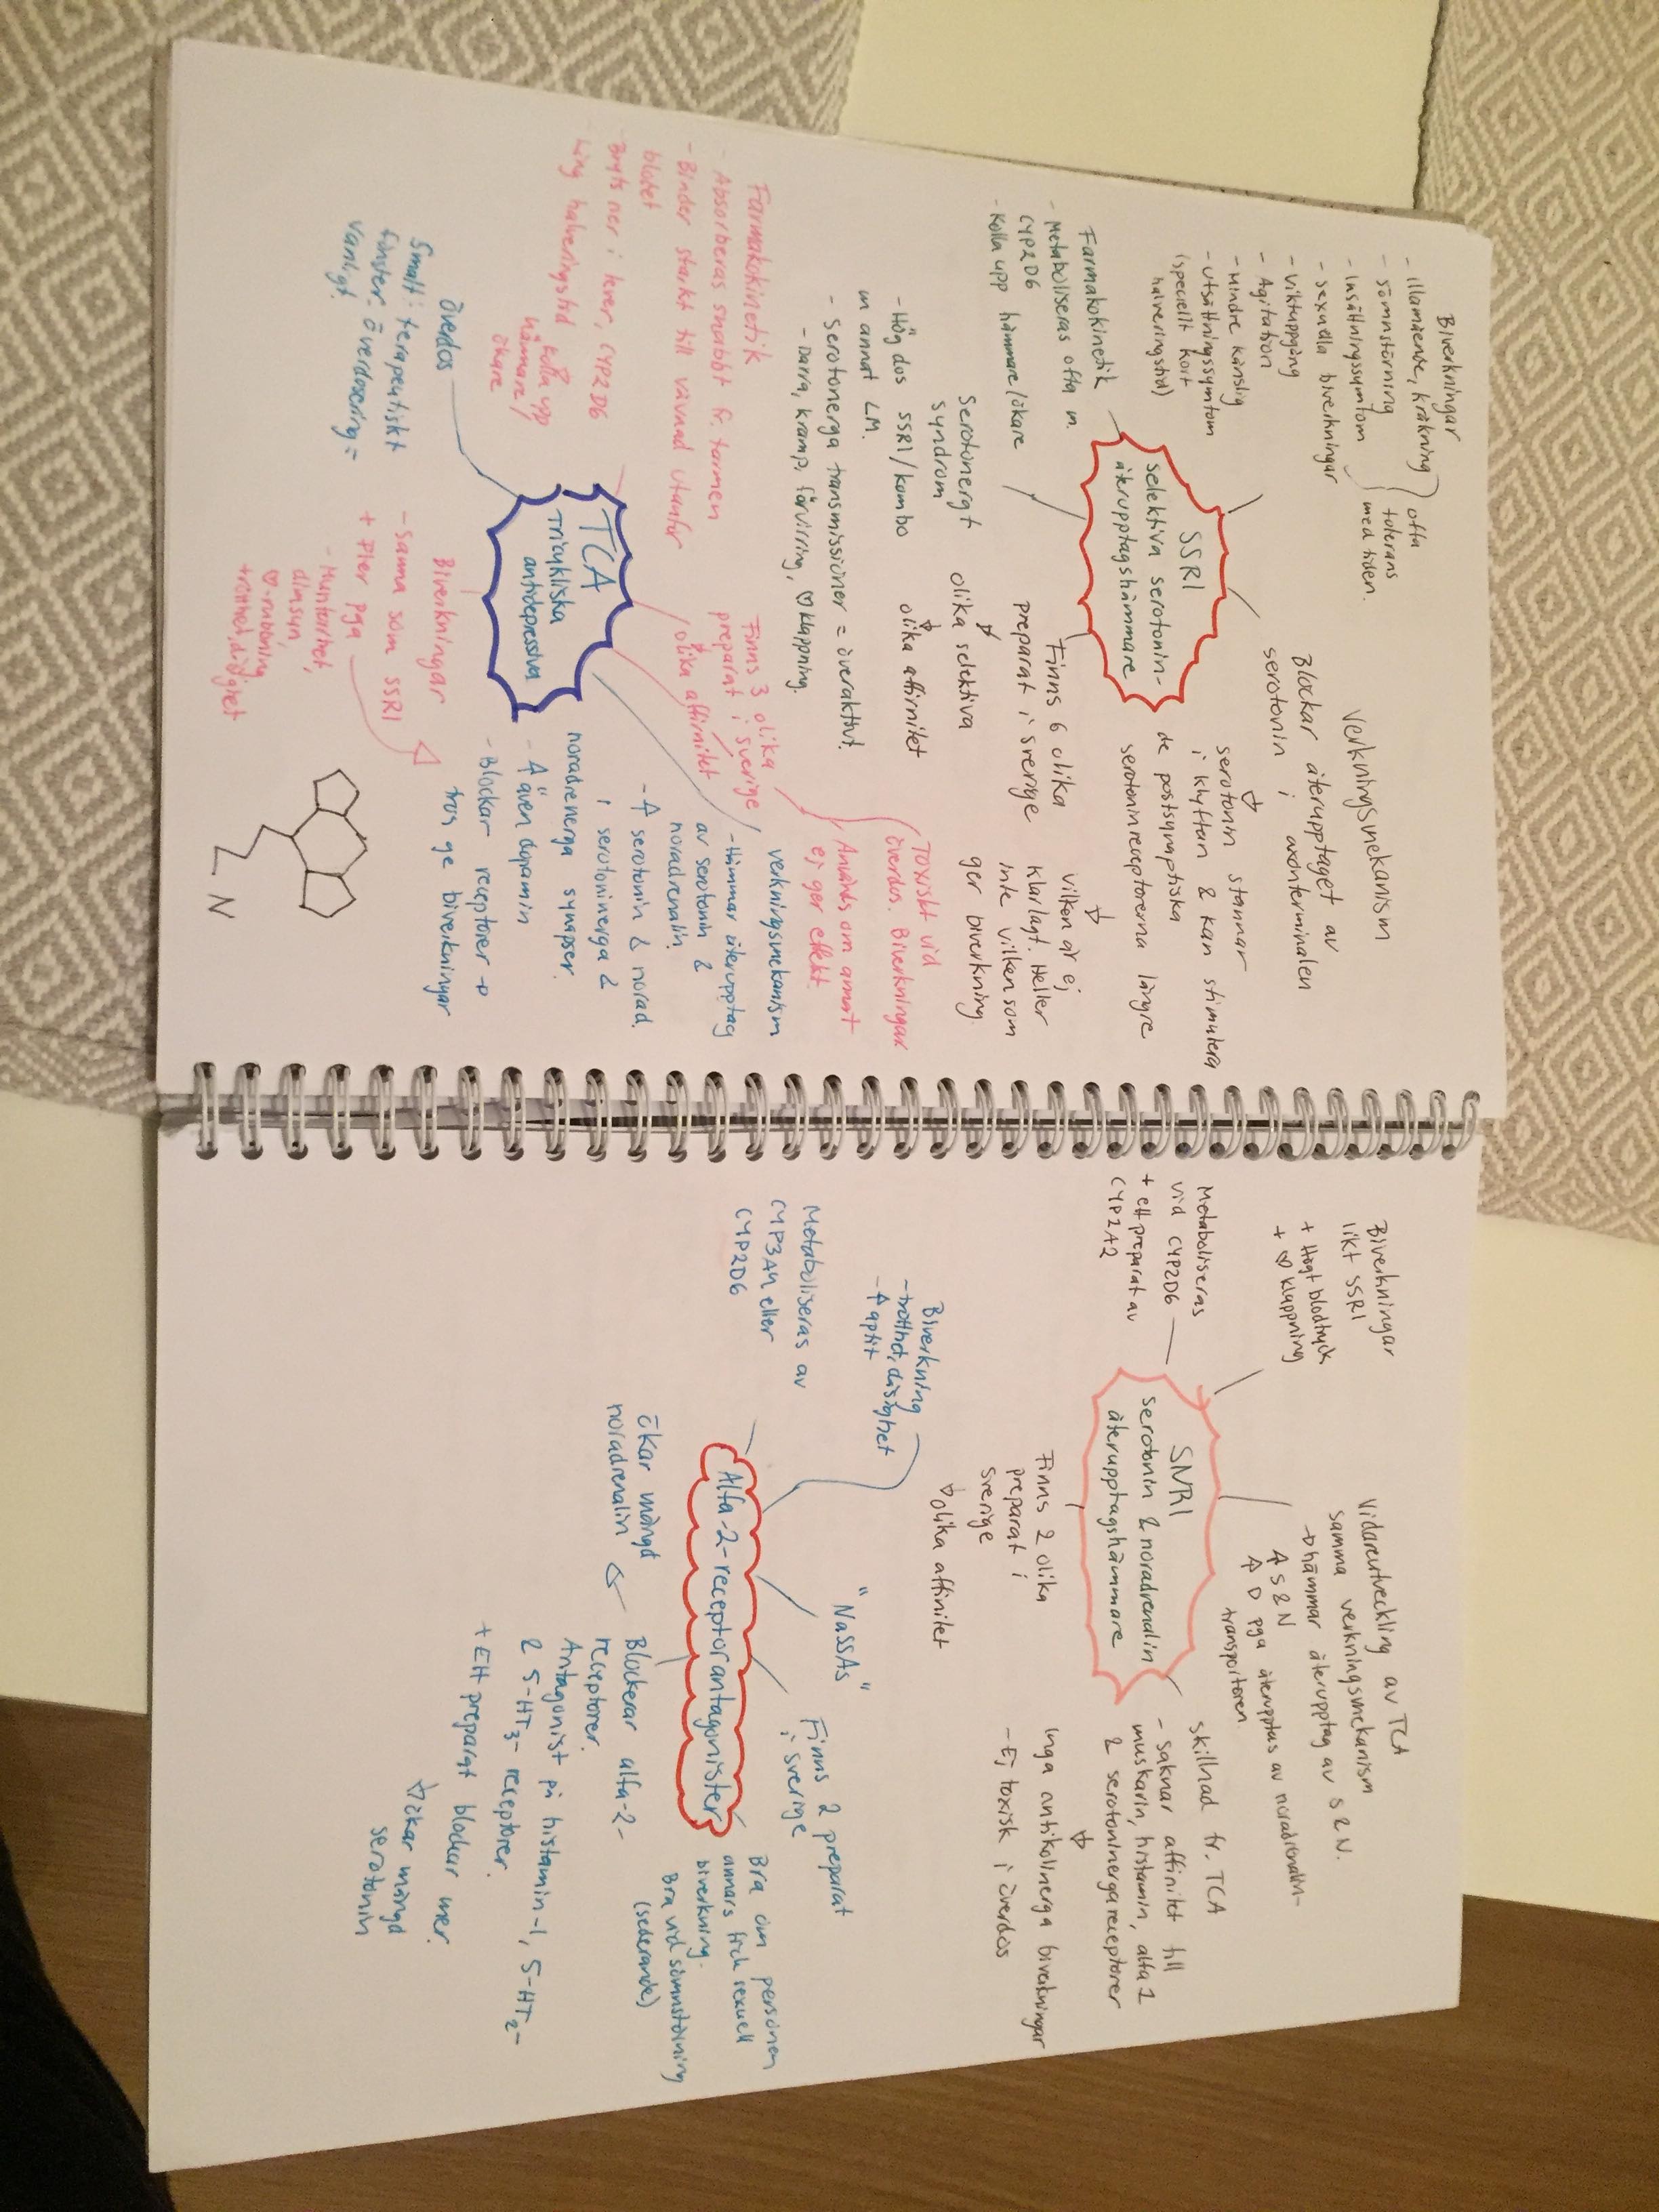 Biverkningar
- illamående, kräkning
- sömnstörning
- insättningssymtom
- sexuella biverkningar
- viktuppgång
- Agitation
- Mindre känslig
- utsättningssymtom
(speciellt kort
halveringstid)
ofta
tolerans
med tiden.
Verkningsmekanism
Blockar återupptaget av
serotonin i axonterminalen
serotonin stannar
i klyftan & kan stimulera
de postsynaptiska
serotoninreceptorerna längre
SSRI
selektiva serotonin-
återupptagshämmare
Farmakokinetik
- Metaboliseras ofta m.
CYP2D6
- Kolla upp hämmare/ökare
Finns 6 olika
preparat i sverige
olika selektiva
olika affinitet
vilken är ej
klarlagt. Heller
inte vilken som
ger biverkning.
Serotonergt
syndrom
- Hög dos SSRI/kombo
m annat LM.
- Serotonerga transmissioner = överaktivt.
- Darra, kramp, förvirring, ♡klappning.
Toxiskt vid
överdos. Biverkningar
Används om annat
ej ger effekt.
Farmakokinetik
- Absorberas snabbt fr. tarmen
- Binder starkt till vävnad utanför
blodet
- Bryts ner i lever, CYP2D6
- Lång halveringstid
kolla upp
hämmare/
ökare
Finns 3 olika
preparat i sverige
olika affinitet
verkningsmekanism
- Hämmar återupptag
av serotonin &
noradrenalin
- ↑ serotonin & norad.
i serotoninerga &
noradrenerga synapser.
- ↑ även dopamin
- Blockar receptorer →
tros ge biverkningar
TCA
Tricykliska
antidepressiva
överdos
Smalt terapeutiskt
fönster: överdosering =
vanligt.
Biverkningar
- Samma som SSRI
+ Fler pga
- Muntorrhet,
dimsyn,
♡-rubbning
trötthet, dåsighet
N
Biverkningar
likt SSRI
+ Högt blodtryck
+ ♡klappning
Vidareutveckling av TCA
samma verkningsmekanism
→ hämmar återupptag av S & N.
↑ S & N
↑ D pga återupptas av noradrenalin-
transportören.
Metaboliseras
vid CYP2D6
+ ett preparat av
CYP2A2
SNRI
serotonin & noradrenalin
återupptagshämmare
skillnad fr. TCA
- saknar affinitet till
muskarin, histamin, alfa 1
& serotoninerga receptorer
Inga antikolinerga biverkningar
- Ej toxisk i överdos
Finns 2 olika
preparat i
sverige
olika affinitet
Biverkning
- trötthet, dåsighet
- ↑ aptit
"NaSSAs"
Finns 2 preparat
i sverige
Metaboliseras av
CYP3A4 eller
CYP2D6
Alfa-2-receptorantagonister
Bra om personen
annars fick sexuell
biverkning.
Bra vid sömnstörning
(sederande)
Ökar mängd
noradrenalin
Blockerar alfa-2-
receptorer.
Antagonist på histamin-1, 5-HT2-
& 5-HT3- receptorer.
+ Ett preparat blockar mer.
ökar mängd
serotonin